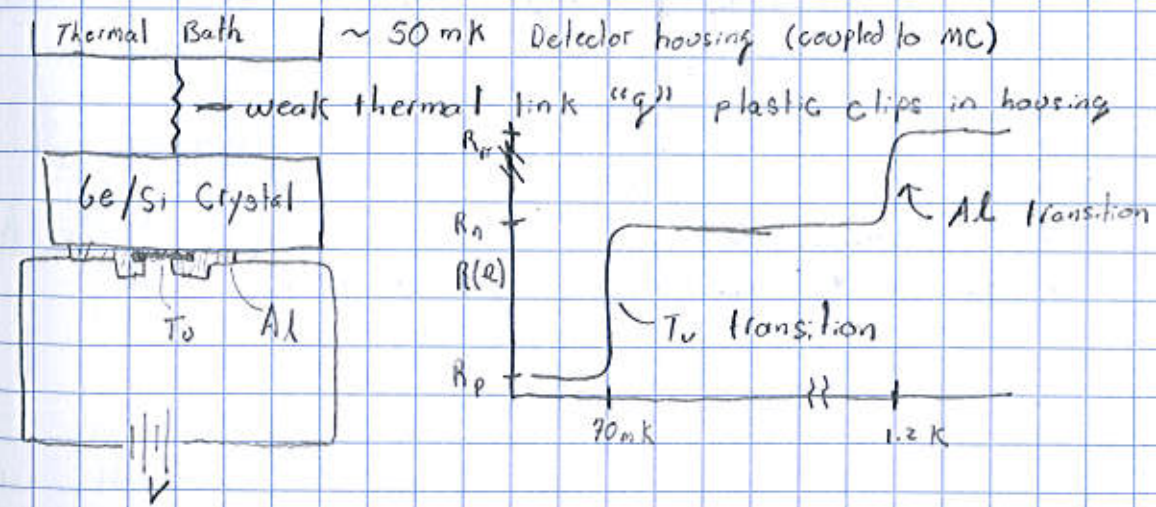 Thermal Bath ~ 50 mK Detector housing (coupled to MC)
weak thermal link "g" plastic clips in housing
Ge/Si Crystal
Al Transition
Rn
R(Ω)
Al
Tu Transition
Rp
70mK
1.2 K
V